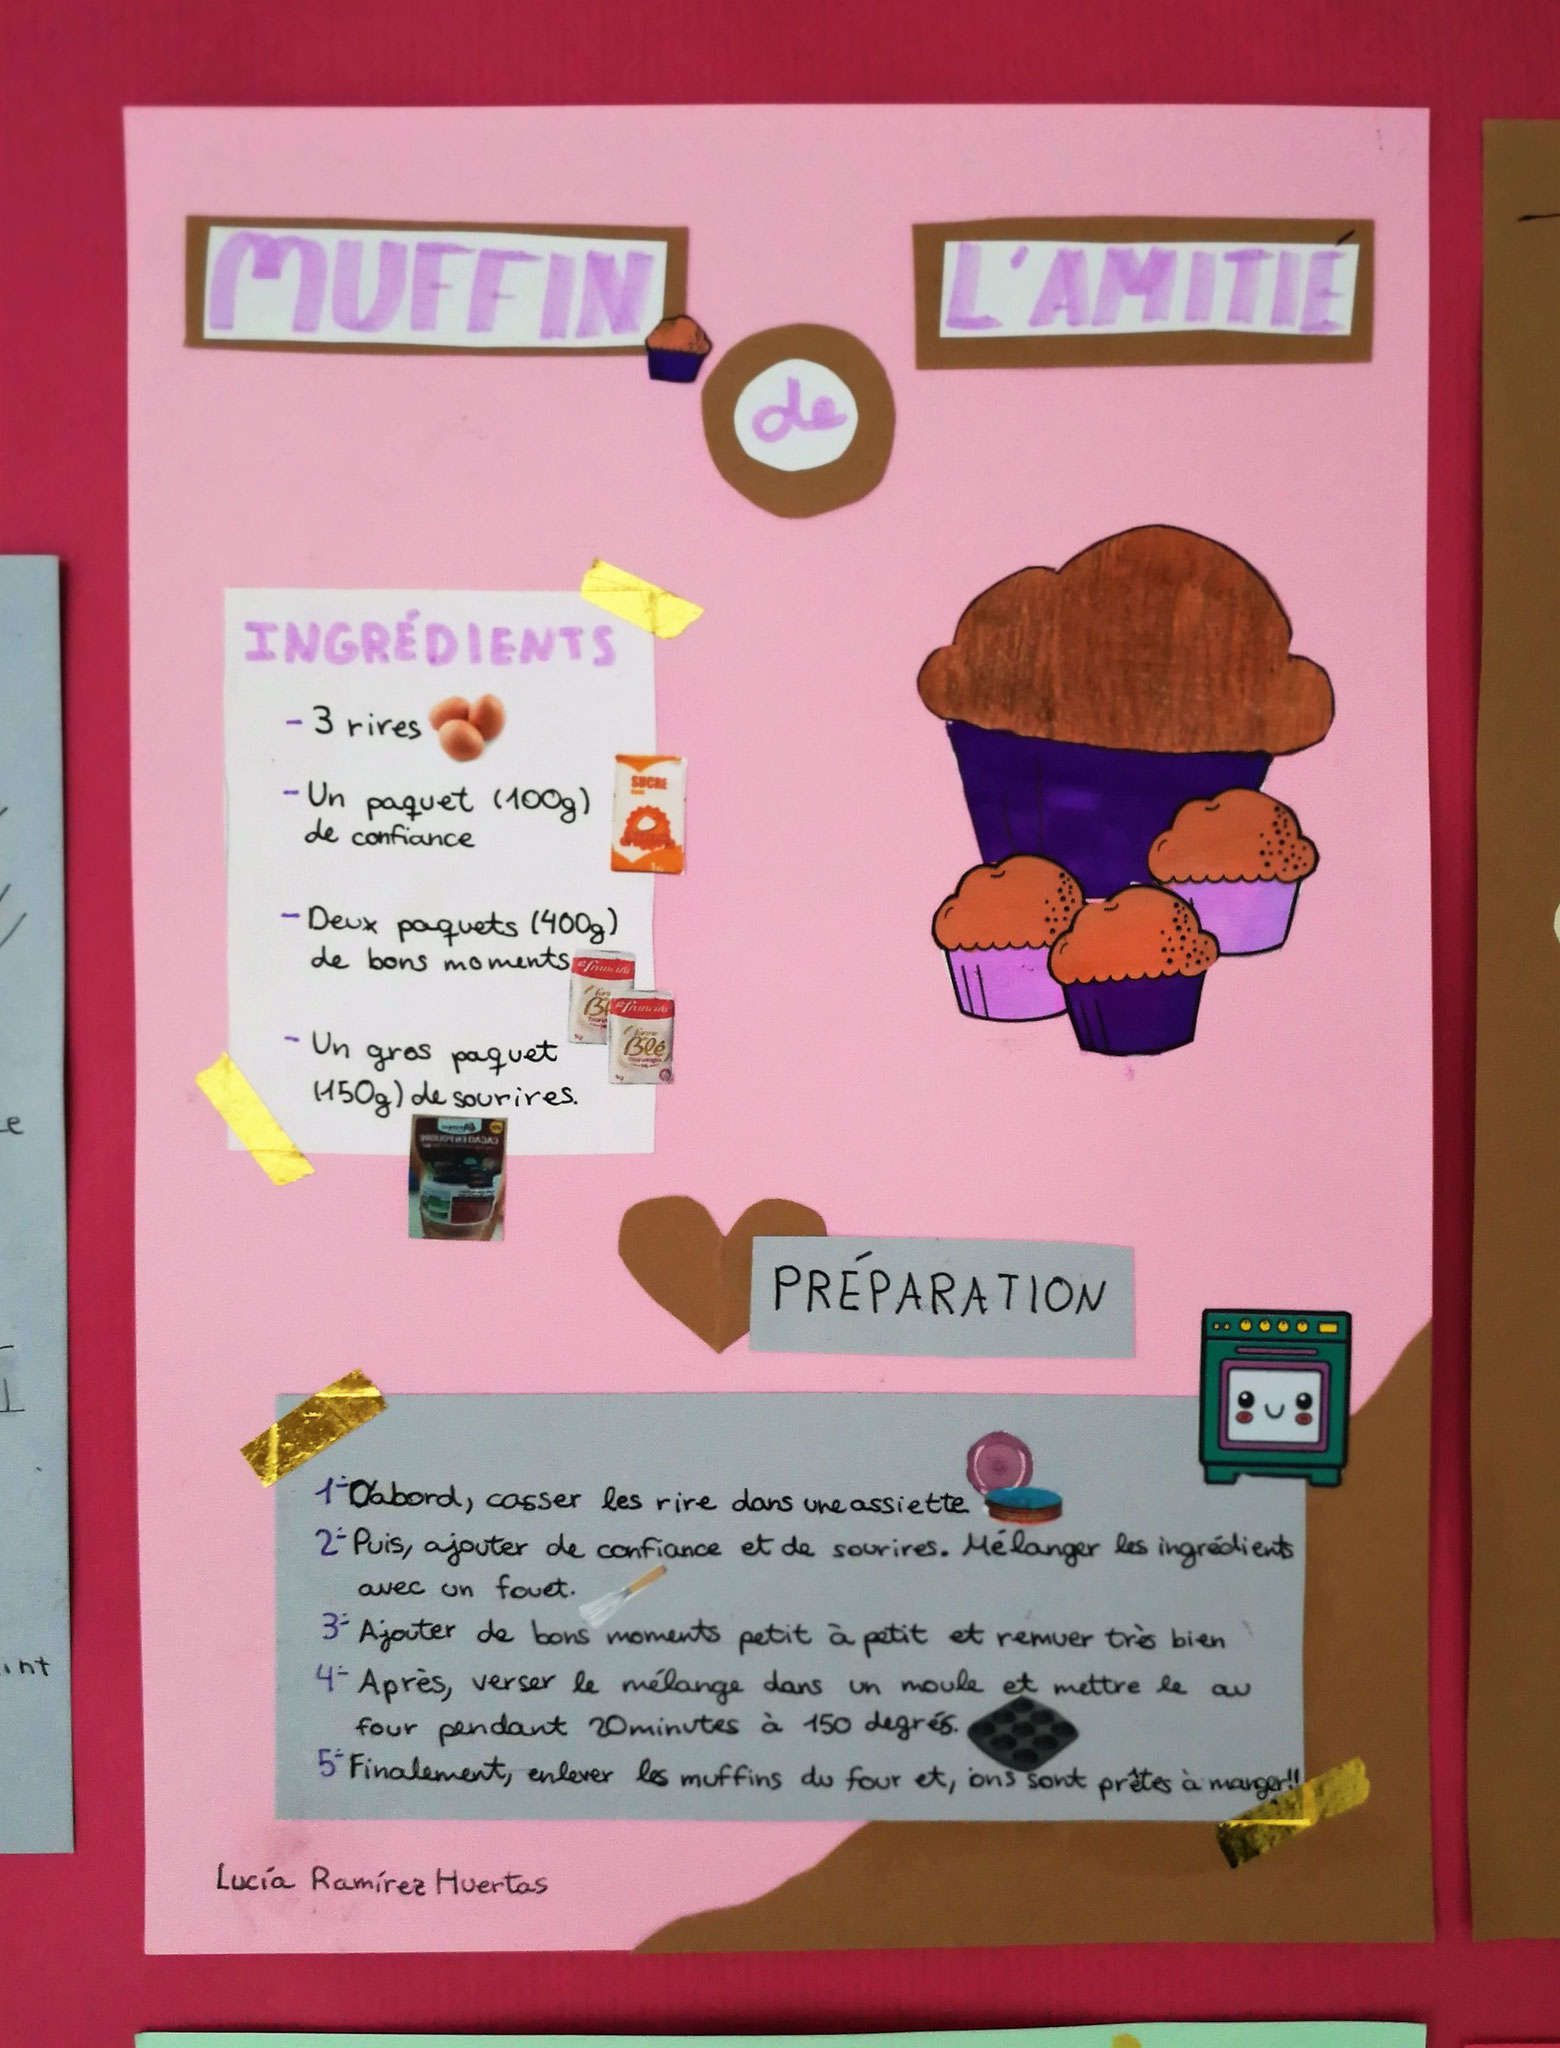 MUFFIN
de
L'AMITIÉ
INGRÉDIENTS
- 3 rires
- Un paquet (100g)
de confiance
SUCRE
- Deux paquets (400g)
de bons moments
francine
Blé
- Un gros paquet
(150g) de sourires.
CACAO EN POUDRE
PRÉPARATION
1- D'abord, casser les rire dans une assiette.
2- Puis, ajouter de confiance et de sourires. Mélanger les ingrédients
avec un fouet.
3- Ajouter de bons moments petit à petit et remuer très bien
4- Après, verser le mélange dans un moule et mettre le au
four pendant 20 minutes à 150 degrés.
5- Finalement, enlever les muffins du four et, ons sont prêtes à manger!!
Lucía Ramírez Huertas